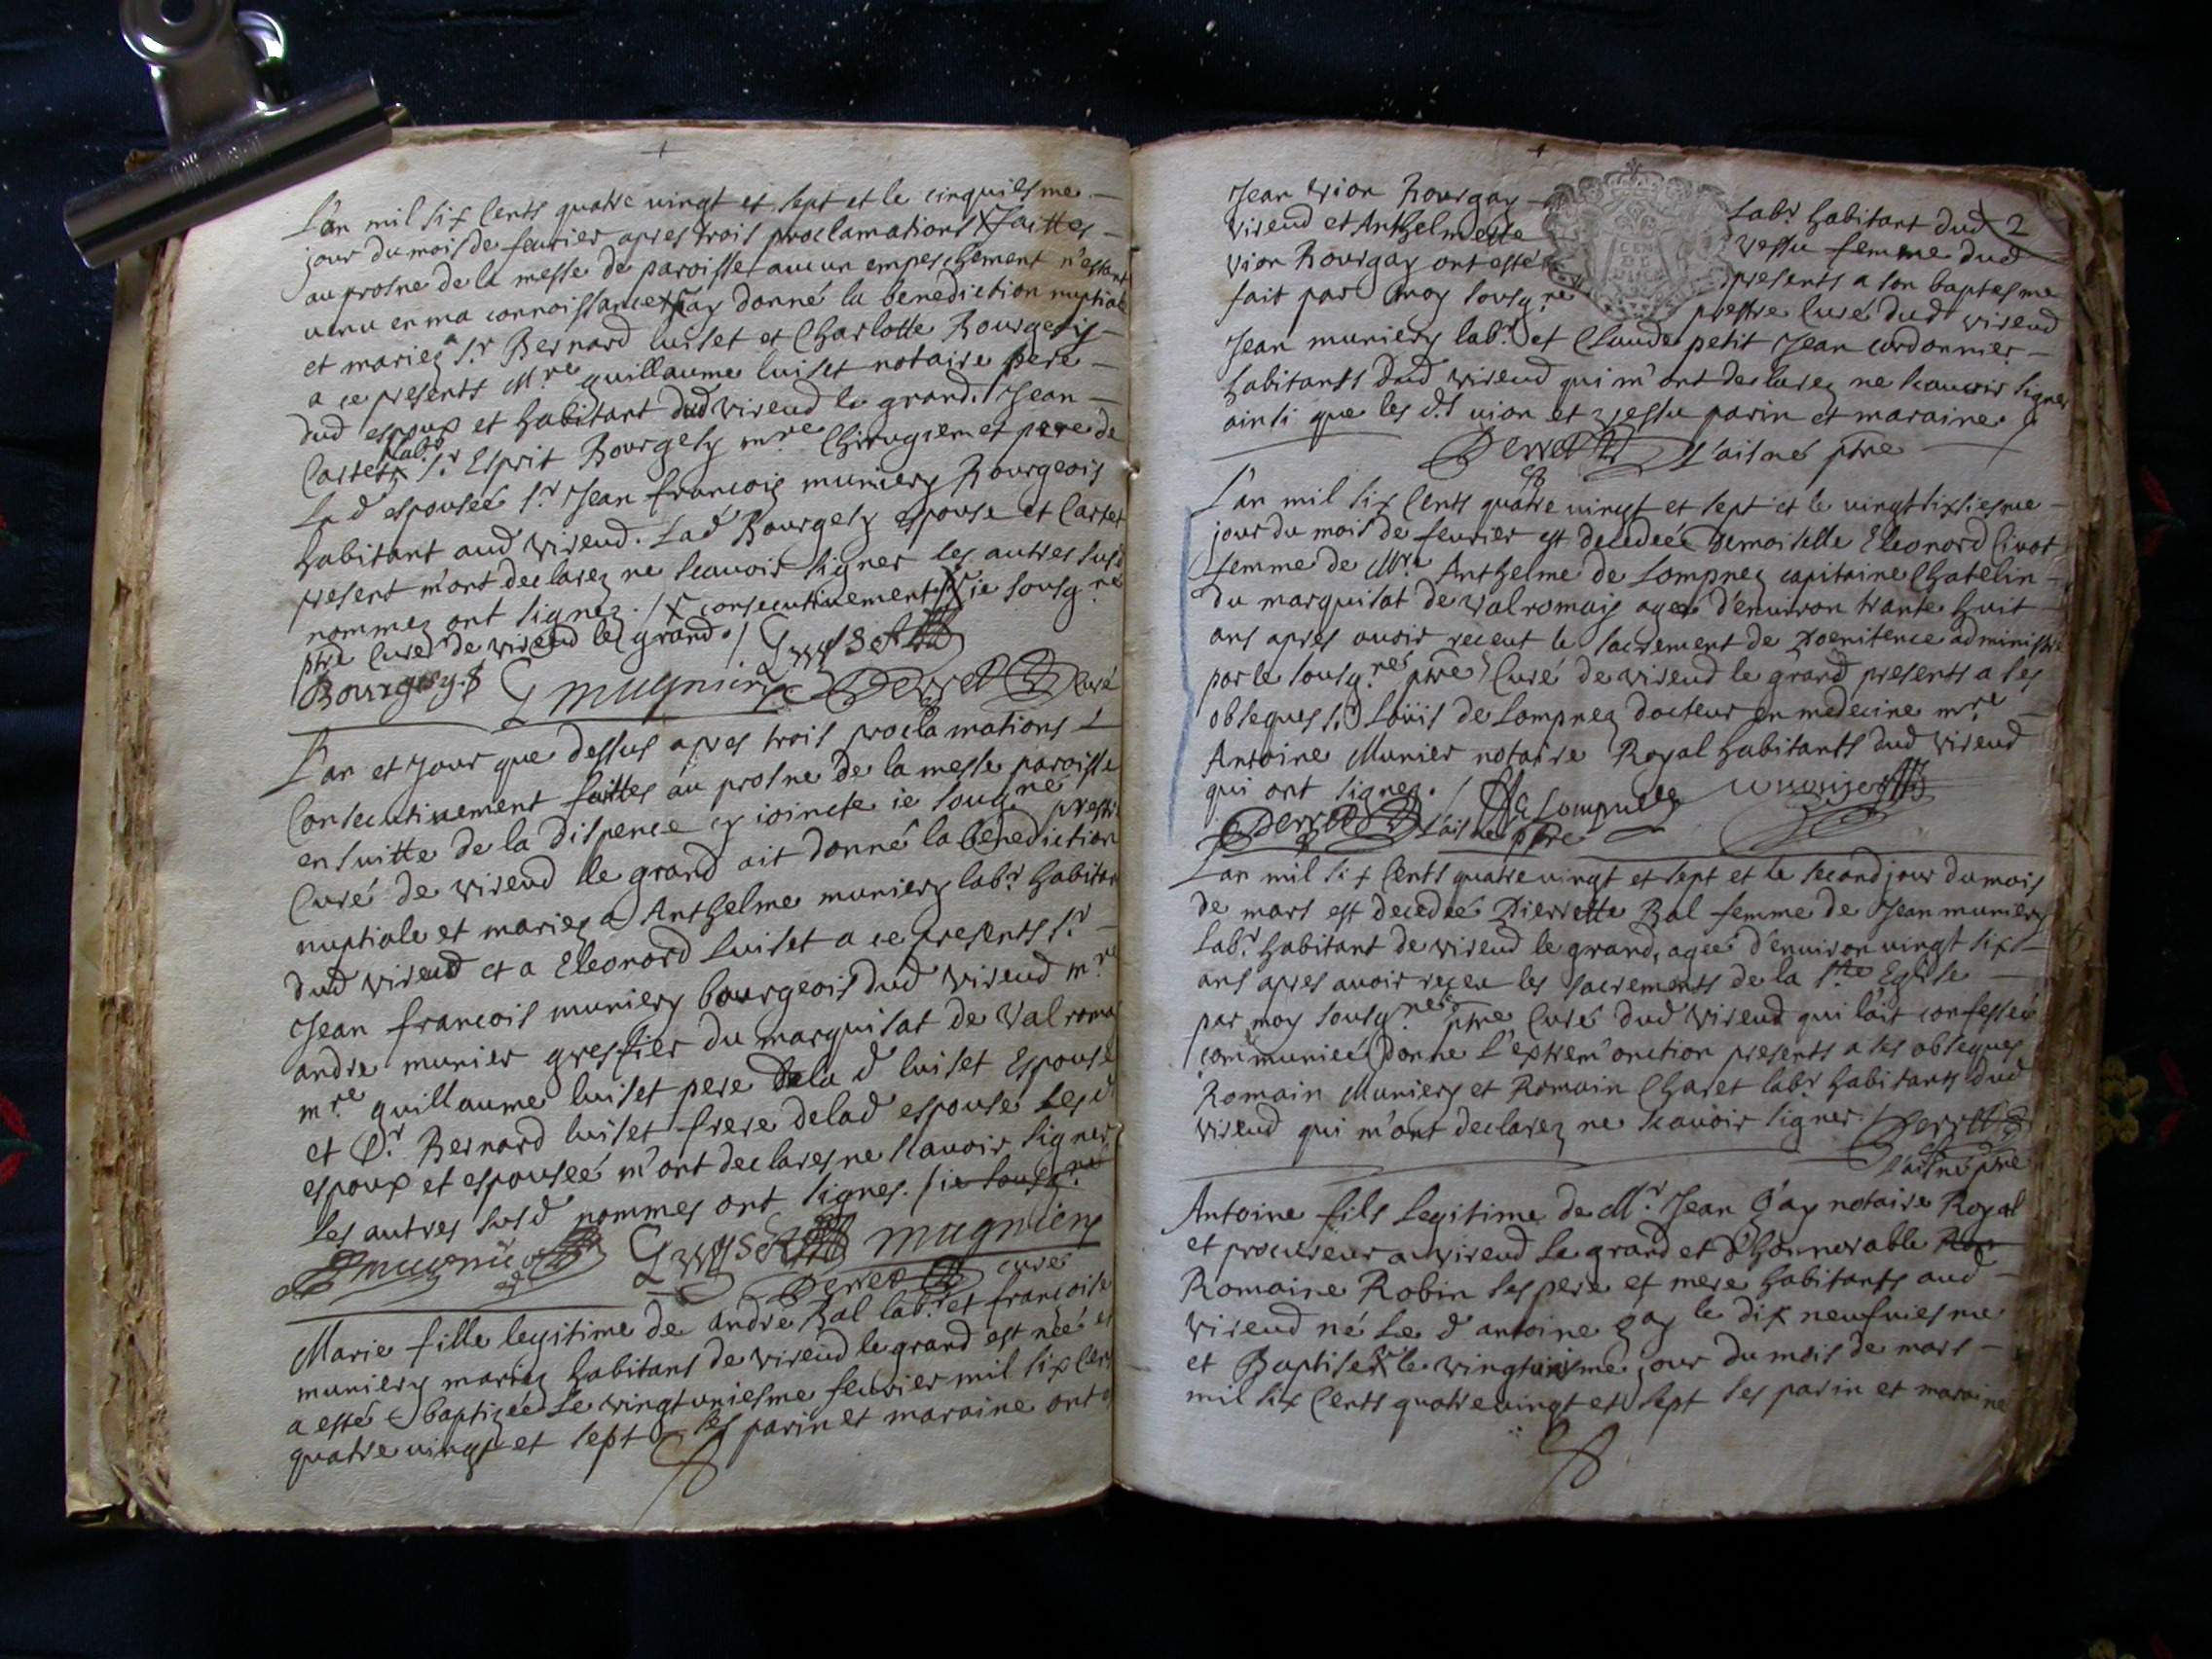 L'an mil six Cents quatre vingt et sept et le cinquiesme
jour du mois de feurier apres trois proclamations X faittes
au prosne de la messe de paroisse aucun empeschement n'estant
venu en ma connoissance X j'ay donné la benediction nuptiale
et mariez Sr Bernard luiset et Charlotte Bourgesy
a ce presents Mre guillaume luiset notaire pere
dud espoux et habitant dud virieud le grand. Jean
labr
Cartetz Sr Esprit Bourgesy mre Chirugien et pere de
La d espouseé Sr Jean francois muniery Bourgeois
habitant aud virieud. Lad Bourgesy espouse et Cartet
present m'ont declarez ne scauoir signer les autres susd
nommez ont signez. / X consecutiuement / X ie sousgne
ptre Curé de virieud le grand. / Luyset
Bourgesy. G mugniery Perret Curé
L'an et jour que dessus apres trois proclamations
Consecutiuement faittes au prosne de la messe paroisse
en suitte de la dispence cy ioincte ie sougné prestre
Curé de virieud le grand ait donné la benediction
nuptiale et mariez a Anthelme muniery labr habitant
dud virieud et a Eleonord Luiset a ce presents Sr
Jean francois muniery bourgeois dud virieud mre
andre munier greffier du marquisat de Valroma
mre guillaume luiset pere de la d luiset Espouse
et Sr Bernard luiset frere de lad espouse Les d
espoux et espouseé m'ont declares ne scauoir signer
Les autres susd nommes ont signes. / ie sousgne
munier Luyset mugniery
Perret curé
Marie fille legitime de andré Bal labr et francoise
muniery mariez habitans de virieud le grand est neé et
a esté baptizeé Le vingtuniesme feurier mil six Cens
quatre vingt et sept ses parin et maraine ont
Jean vion Bourgay labr habitant dud 2
virieud et Anthelmette vessu femme dud
vion Bourgay ont esté presents a son baptesme
fait par moy sousgné prestre Curé dud virieud
Jean muniery labr et Claude petit Jean cordonnier
habitants dud virieud qui m'ont declarez ne scauoir signer
ainsi que les d.t vion et vessu parin et maraine.
Perret l'aisné ptre
L'an mil six Cents quatre vingt et sept et le vingt sixiesme
jour du mois de feurier est decedeé Demoiselle Eleonord Ciuot
femme de Mre Anthelme de Lompnez capitaine Chatelin
du marquisat de valromais ageé d'enuiron trante huit
ans apres auoir receut le sacrement de Poenitence administré
par le sousgné ptre Curé de virieud le grand presents a ses
obseques Sr Loüis de Lompnez docteur en medecine mre
Antoine Munier notaire Royal habitants dud virieud
qui ont signez. / De Lompnez munier
Perret l'aisné ptre
L'an mil six Cents quatre vingt et sept et le second jour du mois
de mars est decedeé Pierrette Bal femme de Jean muniery
labr habitant de virieud le grand, ageé d'enuiron vingt six
ans apres auoir receu les sacrements de la Ste Eglise
par moy sousgné ptre Curé dud virieud qui l'ait confesseé
communieé donne l'extrem'onction presents a ses obseques
Romain Muniery et Romain Charet labr habitants dud
virieud qui m'ont declarez ne scauoir signer. / Perret
l'aisné ptre
Antoine fils legitime de Mr Jean Gay notaire Royal
et procureur a virieud le grand et d'honnorable Rom
Romaine Robin ses pere et mere habitants aud
virieud né Le d antoine gay le dix neufuiesme
et Baptisé le vingtuniesme jour du mois de mars
mil six Cents quatre vingt et sept ses parin et maraine